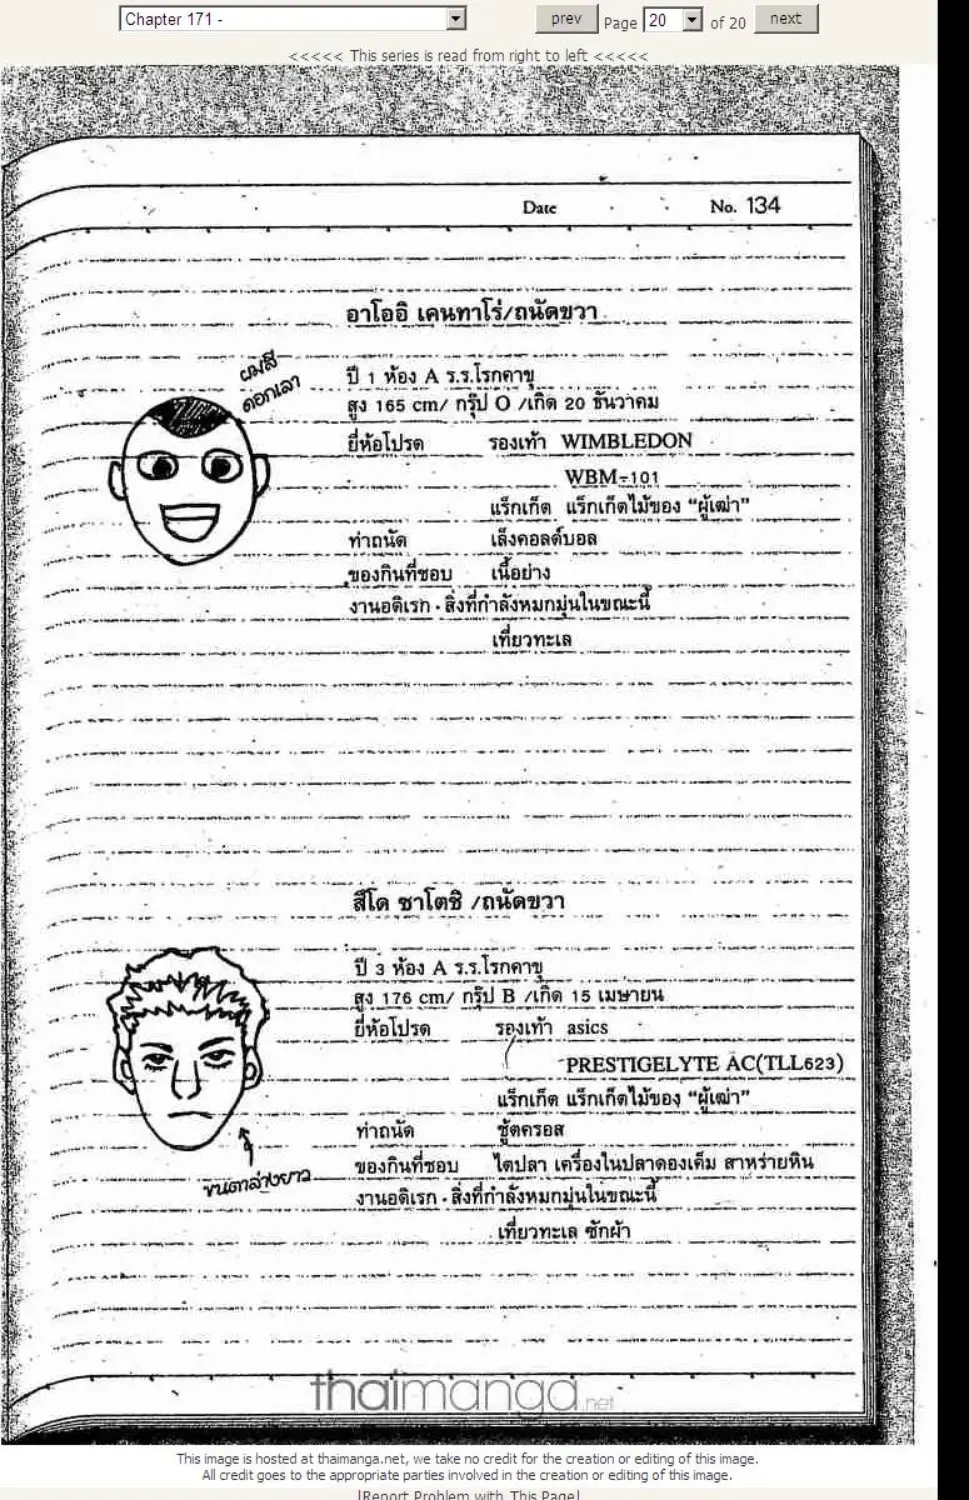 Chapter 171 -
prev Page 20 of 20 next
<<<<< This series is read from right to left <<<<<
Date No. 134
อาโออิ เคนทาโร่/ถนัดขวา
ผมสี
ดอกเลา
ปี 1 ห้อง A ร.ร.โรกคาขุ
สูง 165 cm/ กรุ๊ป O /เกิด 20 ธันวาคม
ยี่ห้อโปรด รองเท้า WIMBLEDON
WBM-101
แร็กเก็ต แร็กเก็ตไม้ของ “ผู้เฒ่า”
ท่าถนัด เล็งคอลด์บอล
ของกินที่ชอบ เนื้อย่าง
งานอดิเรก · สิ่งที่กำลังหมกมุ่นในขณะนี้
เที่ยวทะเล
สึโด ซาโตชิ /ถนัดขวา
ปี 3 ห้อง A ร.ร.โรกคาขุ
สูง 176 cm/ กรุ๊ป B /เกิด 15 เมษายน
ยี่ห้อโปรด รองเท้า asics
PRESTIGELYTE AC(TLL623)
แร็กเก็ต แร็กเก็ตไม้ของ “ผู้เฒ่า”
ท่าถนัด ชู้ตครอส
ของกินที่ชอบ ไตปลา เครื่องในปลาดองเค็ม สาหร่ายหิน
ขนตาล่างยาว
งานอดิเรก · สิ่งที่กำลังหมกมุ่นในขณะนี้
เที่ยวทะเล ซักผ้า
thaimanga.net
This image is hosted at thaimanga.net, we take no credit for the creation or editing of this image.
All credit goes to the appropriate parties involved in the creation or editing of this image.
[Report Problem with This Page]